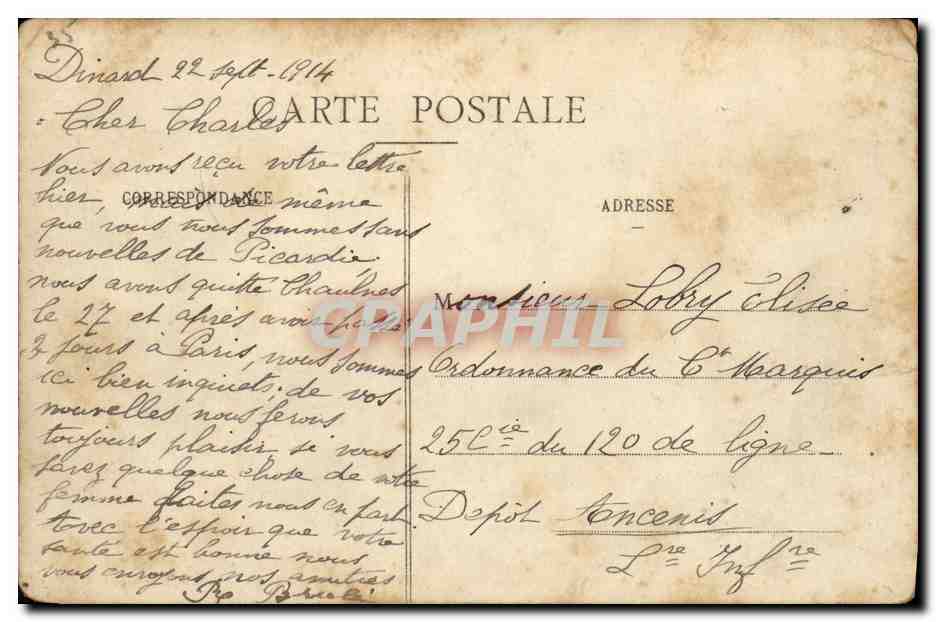 Dinard 22 sept. 1914
CARTE POSTALE
Cher Charles
Nous avons reçu votre lettre
hier, même
CORRESPONDANCE
que vous nous sommes sans
nouvelles de Picardie,
nous avons quitté Chaulnes
le 27 et apres avoir passé
2 jours à Paris, nous sommes
ici bien inquiets; de vos
nouvelles nous ferons
toujours plaisir, si vous
savez quelque chose de votre
femme faites nous en part.
Avec l'espoir que votre
santé est bonne nous
vous envoyons nos amitiés
ADRESSE
Monsieur Lobry Élisée
Ordonnance du Ct Marquis
25 Cie du 120 de ligne
Depôt Ancenis
Lre Infre
CPAPHIL